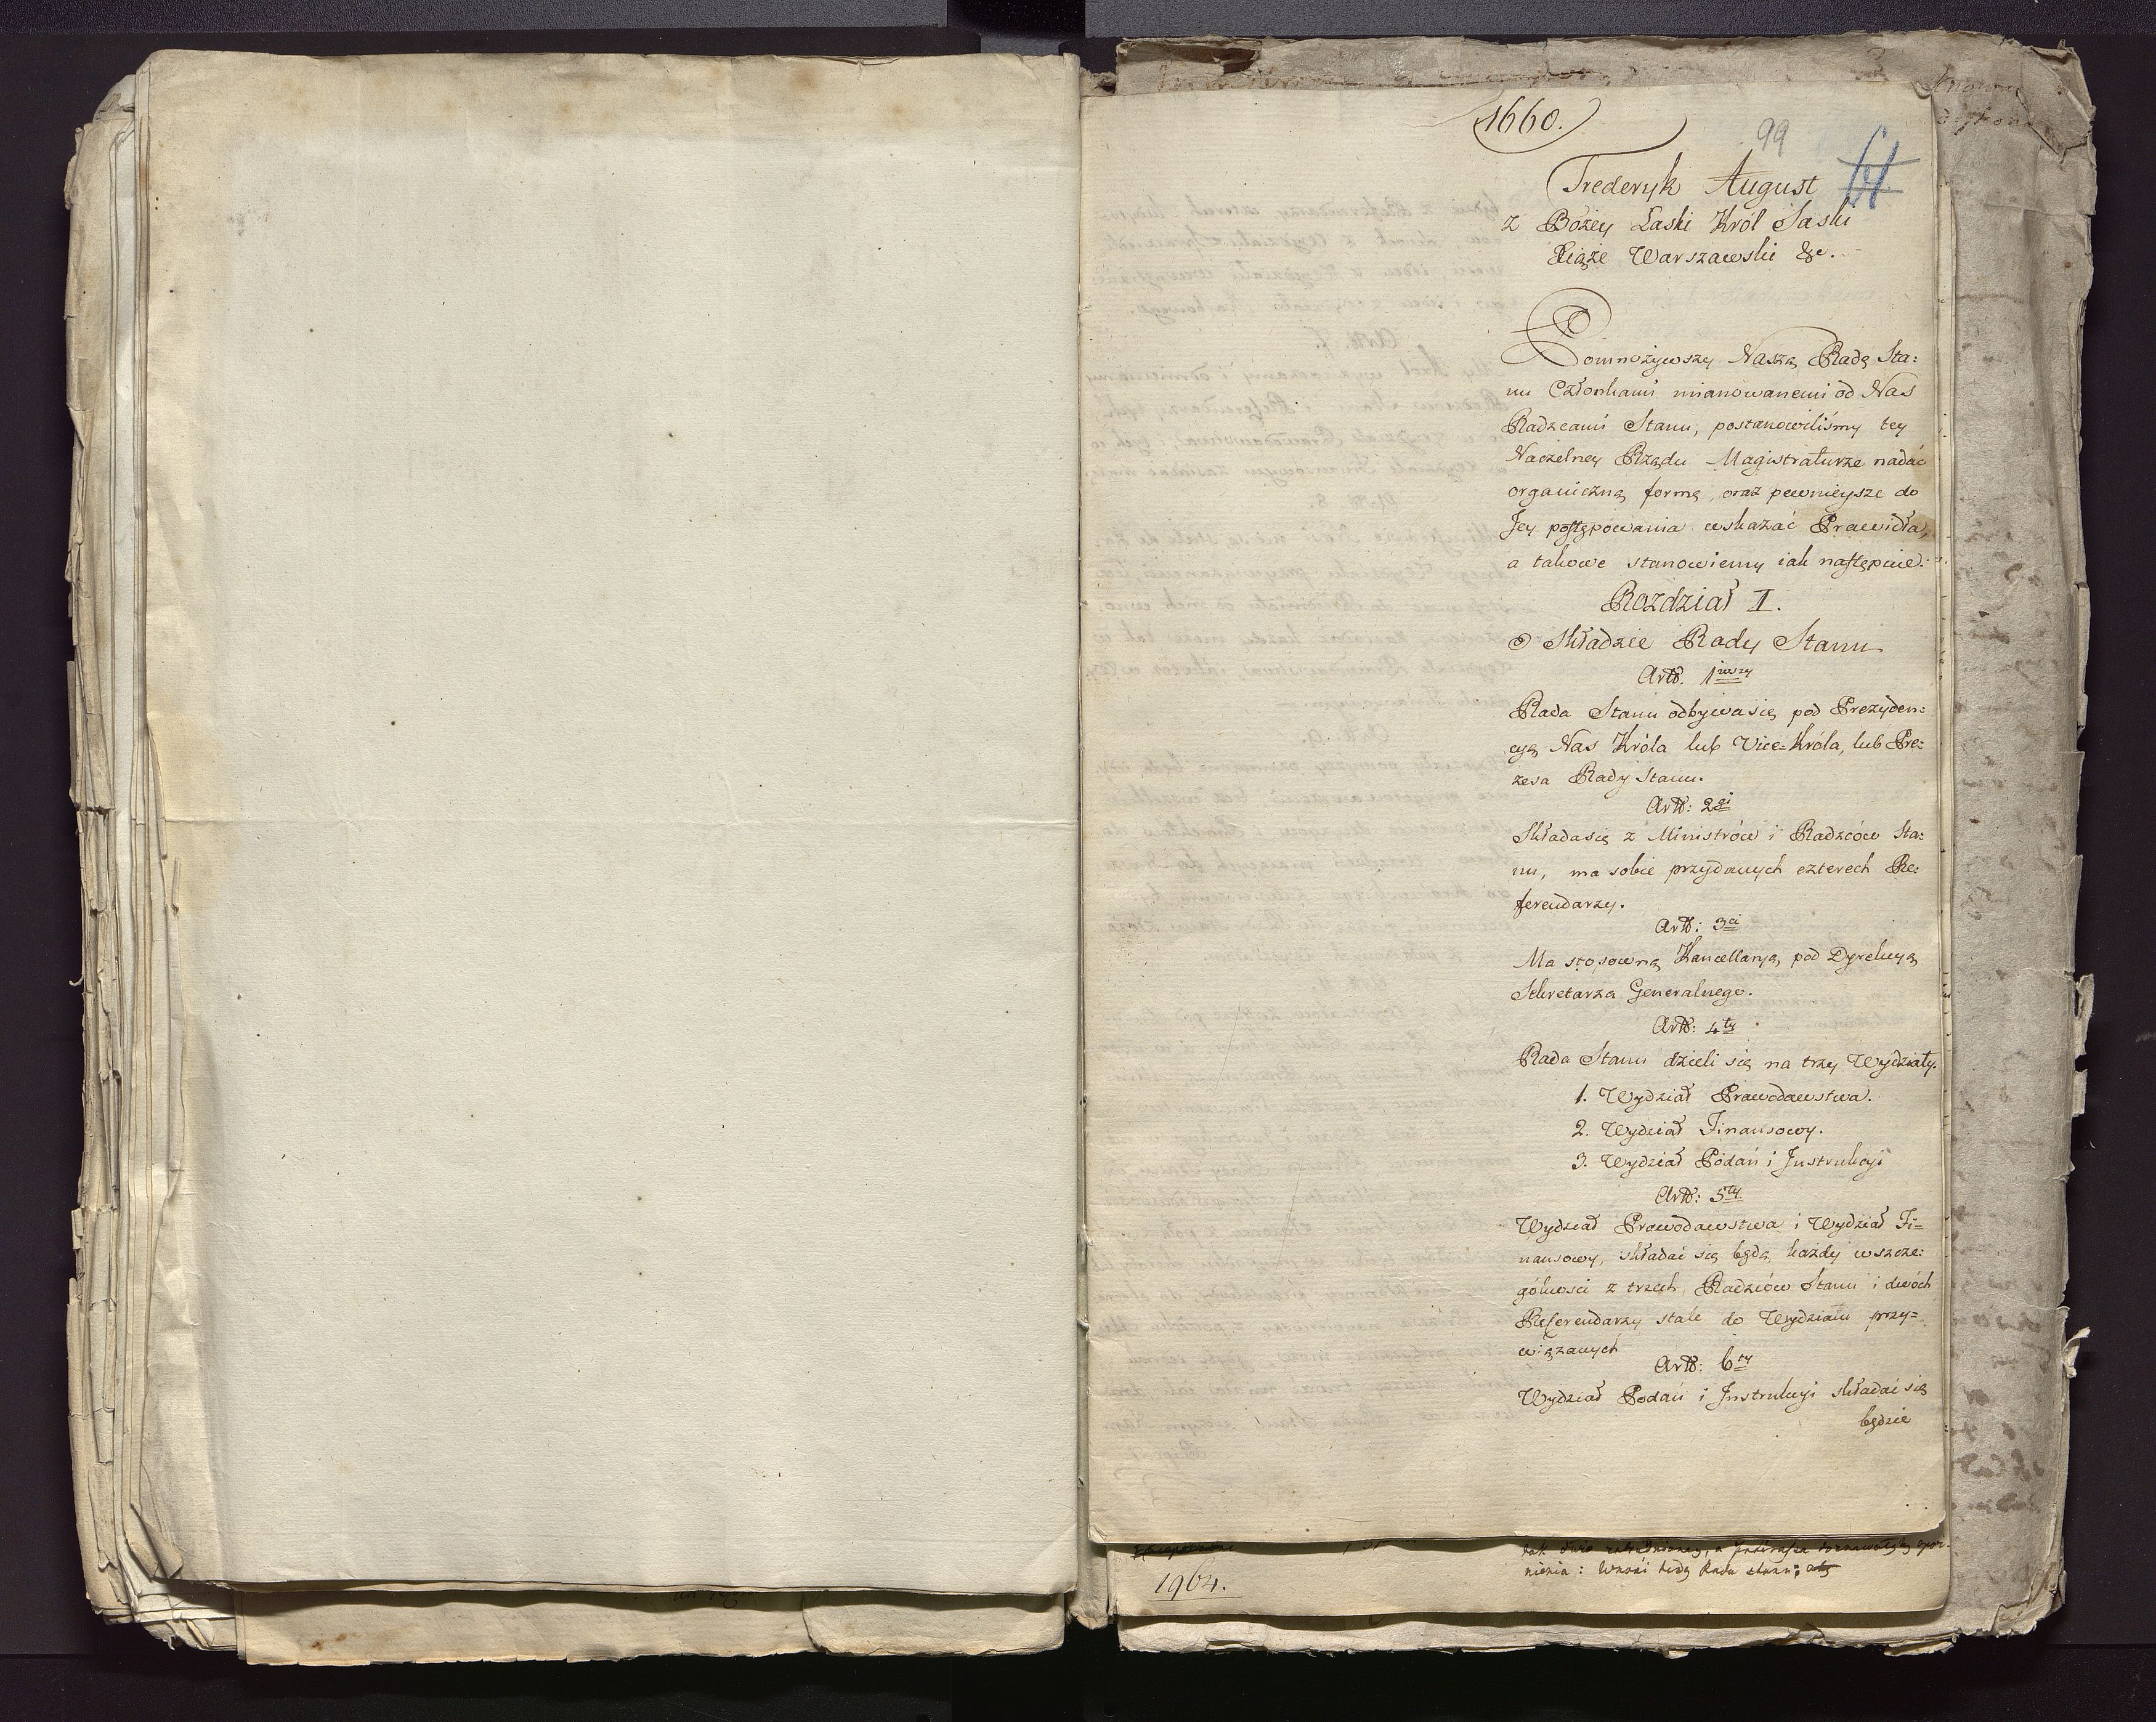 1660.
99
64
Frederyk August
z Bożey Łaski Król Saski
Xiąże Warszawski &c.
Pomnożywszy Naszą Radę Sta:
nu Członkami mianowanemi od Nas
Radzcami Stanu, postanowiliśmy tey
Naczelney Rządu Magistraturze nadać
organiczną formę, oraz pewnieysze do
Jey postępowania wskazać Prawidła,
a takowe stanowiemy iak następuie:
Rozdział I.
O Składzie Rady Stanu
Artł. 1wszy
Rada Stanu odbywa się pod Prezyden:
cyą Nas Króla lub Vice=Króla, lub Pre:
zesa Rady Stanu.
Artł: 2gi
Składa się z Ministrów i Radzców Sta:
nu, ma sobie przydanych czterech Re:
ferendarzy.
Artł: 3ci
Ma stosowną Kancellaryą pod Dyrekcyą
Sekretarza Generalnego.
Artł: 4ty
Rada Stanu dzieli się na trzy Wydziały.
1. Wydział Prawodawstwa.
2. Wydział Finansowy.
3. Wydział Podań i Instrukcyi
Artł: 5ty
Wydział Prawodawstwa i Wydział Fi=
nansowy, składać się będą każdy w szcze:
gólności z trzech Radzców Stanu i dwóch
Referendarzy stale do Wydziału przy=
wiązanych
Artł: 6ty
Wydział Podań i Instrukcyi składać się
będzie
nienia: Wnosi tedy Rada stanu; aby
1964.